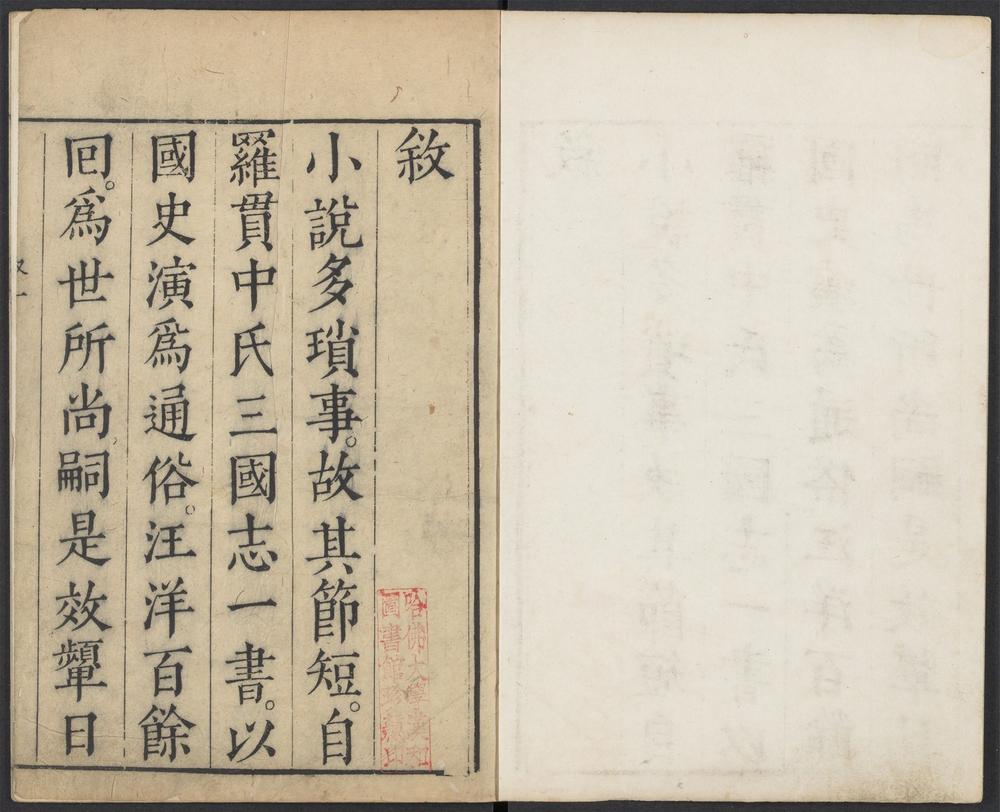 敘
小說多瑣事。故其節短。自
羅貫中氏三國志一書。以
國史演爲通俗。汪洋百餘
囘。爲世所尚。嗣是效顰日
哈佛大學漢和
圖書館珍藏印